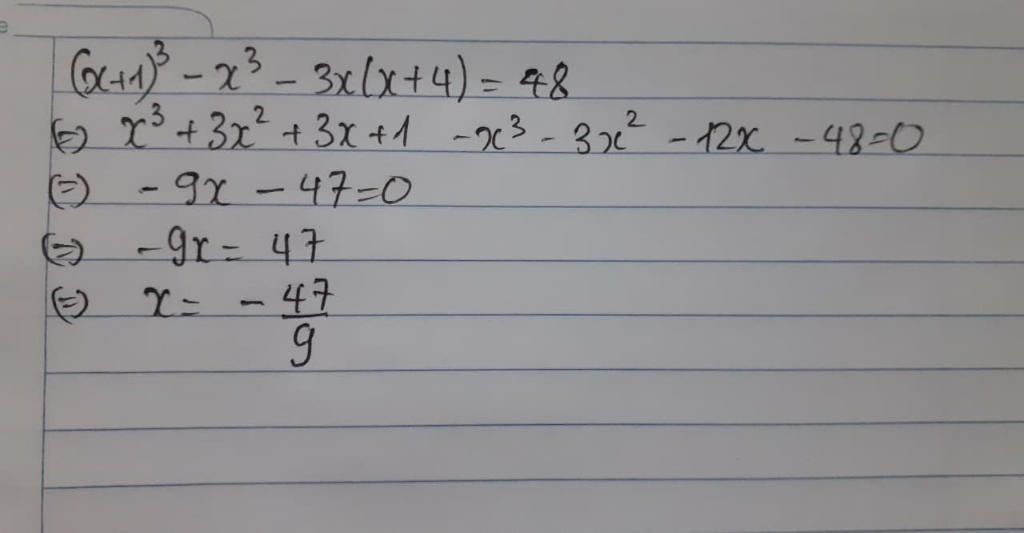 (x+1)³ - x³ - 3x(x+4) = 48
(=) x³ + 3x² + 3x + 1 - x³ - 3x² - 12x - 48 = 0
(=) - 9x - 47 = 0
(=) - 9x = 47
(=) x = - 47/9